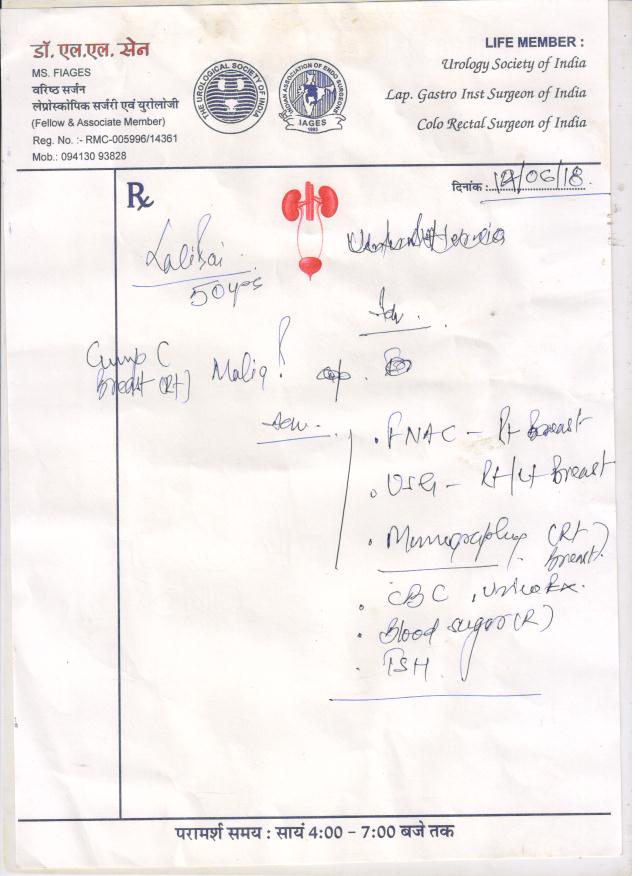 डॉ. एल.एल. सेन
MS. FIAGES
वरिष्ठ सर्जन
लेप्रोस्कोपिक सर्जरी एवं युरोलोजी
(Fellow & Associate Member)
Reg. No. :- RMC-005996/14361
Mob.: 094130 93828
THE UROLOGICAL SOCIETY OF INDIA
IAGES
1993
LIFE MEMBER :
Urology Society of India
Lap. Gastro Inst Surgeon of India
Colo Rectal Surgeon of India
दिनांक : 12/06/18
Rx
Lalibai
50 yrs
Adv.
Breast (Rt) Malig ?
Adv.
. FNAC - Rt Breast
. USG - Rt/Lt Breast
. Mamography (Rt)
Breast.
. CBC, Urine Rx.
. Blood sugar (R)
. TSH
परामर्श समय : सायं 4:00 - 7:00 बजे तक